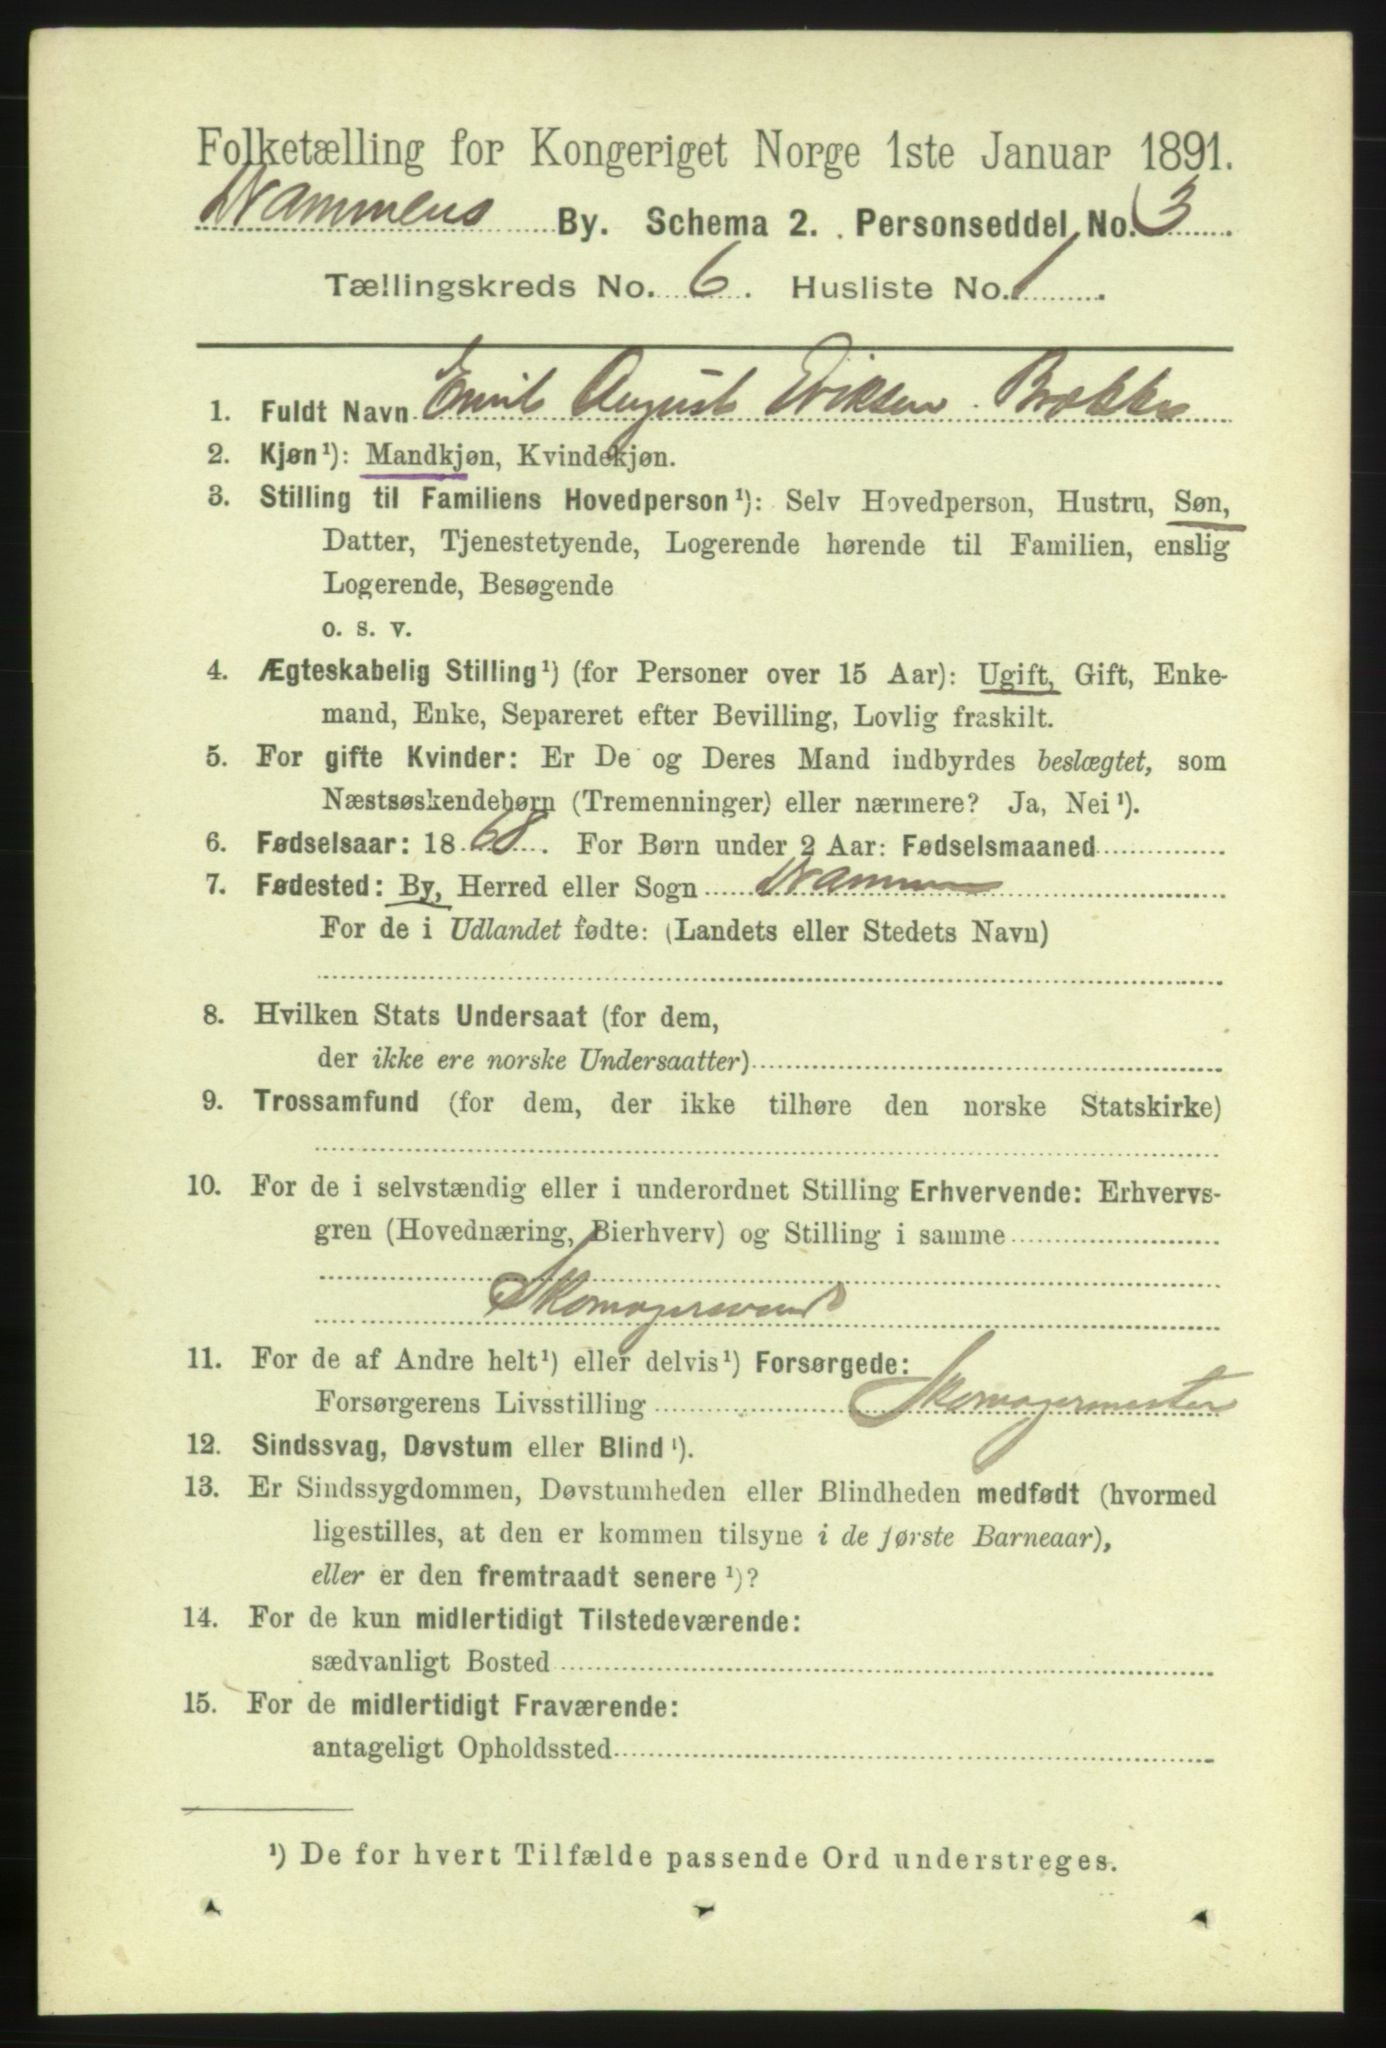 Folketælling for Kongeriget Norge 1ste Januar 1891.
Drammens By. Schema 2. Personseddel No. 3
Tællingskreds No. 6. Husliste No. 1.
1. Fuldt Navn Emil August Eriksen Brække
2. Kjøn¹): Mandkjøn, Kvindekjøn.
3. Stilling til Familiens Hovedperson¹): Selv Hovedperson, Hustru, Søn,
Datter, Tjenestetyende, Logerende hørende til Familien, enslig
Logerende, Besøgende
o. s. v.
4. Ægteskabelig Stilling¹) (for Personer over 15 Aar): Ugift, Gift, Enke-
mand, Enke, Separeret efter Bevilling, Lovlig fraskilt.
5. For gifte Kvinder: Er De og Deres Mand indbyrdes beslægtet, som
Næstsøskendebørn (Tremenninger) eller nærmere? Ja, Nei¹).
6. Fødselsaar: 1868. For Børn under 2 Aar: Fødselsmaaned
7. Fødested: By, Herred eller Sogn Drammen
For de i Udlandet fødte: (Landets eller Stedets Navn)
8. Hvilken Stats Undersaat (for dem,
der ikke ere norske Undersaatter)
9. Trossamfund (for dem, der ikke tilhøre den norske Statskirke)
10. For de i selvstændig eller i underordnet Stilling Erhvervende: Erhvervs-
gren (Hovednæring, Bierhverv) og Stilling i samme
Skomagersvend
11. For de af Andre helt¹) eller delvis¹) Forsørgede:
Forsørgerens Livsstilling Skomagermester
12. Sindssvag, Døvstum eller Blind¹).
13. Er Sindssygdommen, Døvstumheden eller Blindheden medfødt (hvormed
ligestilles, at den er kommen tilsyne i de første Barneaar),
eller er den fremtraadt senere¹)?
14. For de kun midlertidigt Tilstedeværende:
sædvanligt Bosted
15. For de midlertidigt Fraværende:
antageligt Opholdssted
¹) De for hvert Tilfælde passende Ord understreges.